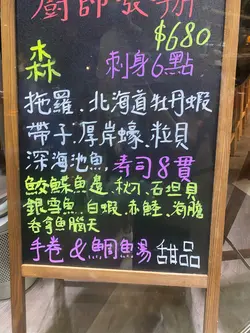 廚師發辦
$680
森 刺身6點
拖羅、北海道牡丹蝦
帶子、厚岸蠔、粒貝
深海池魚、壽司8貫
鮫鰈魚邊、秋刀、石垣貝
銀雪魚、白蝦、赤鯥、海膽
吞拿魚腩天
手卷 & 鯛魚湯 甜品